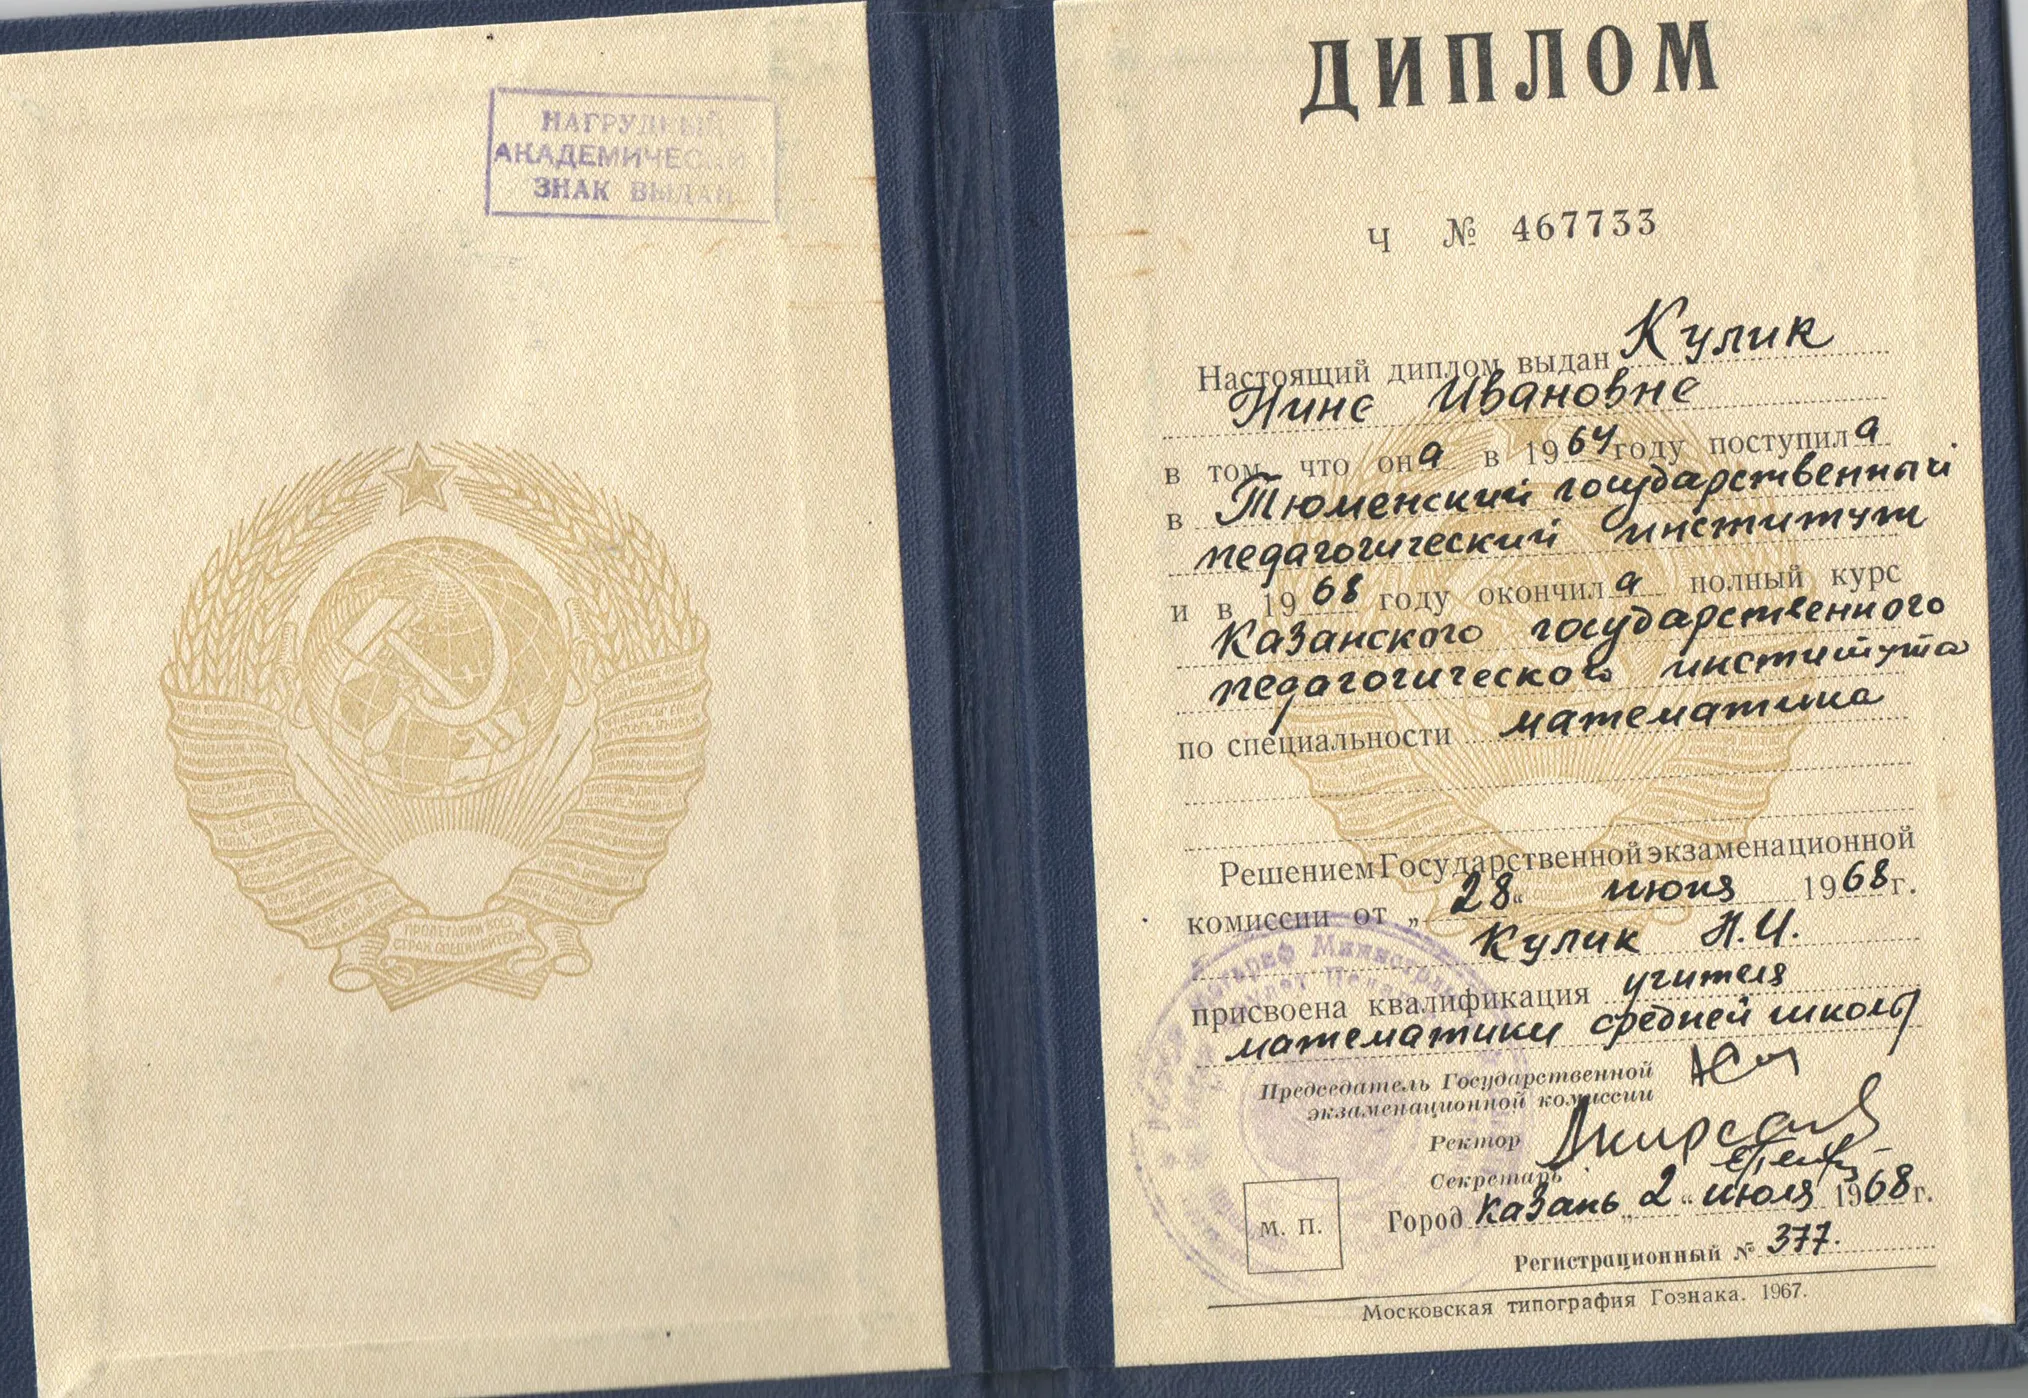 НАГРУДНЫЙ
АКАДЕМИЧЕСКИЙ
ЗНАК ВЫДАН
ПРОЛЕТАРИИ ВСЕХ
СТРАН, СОЕДИНЯЙТЕСЬ
ДИПЛОМ
Ч № 467733
Настоящий диплом выдан Кулик
Нине Ивановне
в том, что она в 1964 году поступила
в Тюменский государственный
педагогический институт
и в 1968 году окончила полный курс
Казанского государственного
педагогического института
по специальности математика
Решением Государственной экзаменационной
комиссии от „28“ июня 1968 г.
Кулик Н.И.
присвоена квалификация учителя
математики средней школы
Председатель Государственной
экзаменационной комиссии
Ректор
Секретарь
М. П.
Город Казань „2“ июля 1968 г.
Регистрационный № 377.
Московская типография Гознака. 1967.